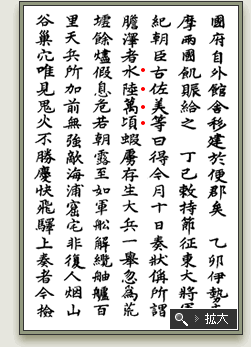 國府自外館舍移建於便郡矣　乙卯伊勢
摩兩國飢賑給之　丁巳勅持節征東大將
紀朝臣古佐美等曰得今月十日奏狀偁所謂
膽澤者水陸萬頃蝦虜存生大兵一舉忽爲荒
墟餘燼假息危若朝露至如軍船解纜舳艫百
里天兵所加前無強敵海浦窟宅非復人烟山
谷巢穴唯見鬼火不勝慶快飛驛上奏者今檢
拡大